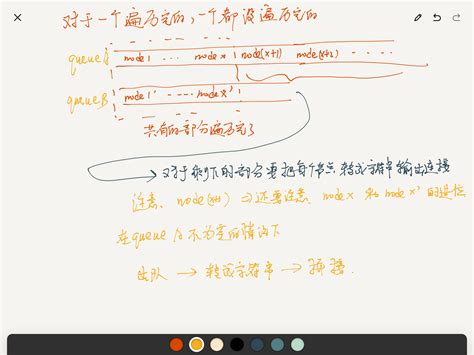 对于一个遍历完的，一个都没遍历完的
queueA node1 ... node x node(x+1) node(x+2) ...
queueB node1' ---- node x'
共有的部分遍历完了
对于剩下的部分要把每个节点转成字符串输出连接
注意、node(x+1) ⇒ 还要注意 node x 和 node x' 的进位
在queue A不为空的情况下
出队 → 转成字符串 →